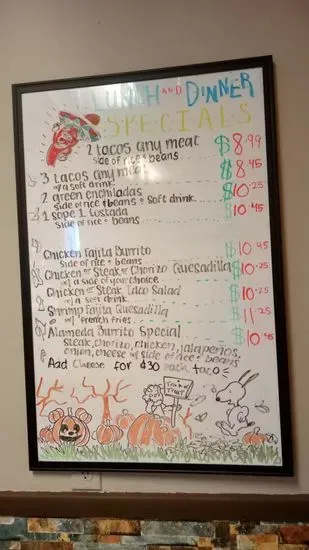 LUNCH AND DINNER
SPECIALS
2 tacos any meat $8.99
side of rice & beans
3 tacos any meat $8.45
w/ a soft drink
2 green enchiladas $10.25
side of rice & beans & soft drink
1 sope 1 tostada $10.45
side of rice & beans
Chicken Fajita Burrito $10.45
side of rice & beans
Chicken or Steak or Chorizo Quesadilla $10.25
w/ a side of your choice
Chicken or Steak Taco Salad $10.25
w/ a soft drink
Shrimp Fajita Quesadilla $11.25
w/ french fries
Alameda Burrito Special $10.45
steak, chorizo, chicken, jalapeños,
onion, cheese w/ side of rice & beans
Add cheese for $.30 each taco
TREAT